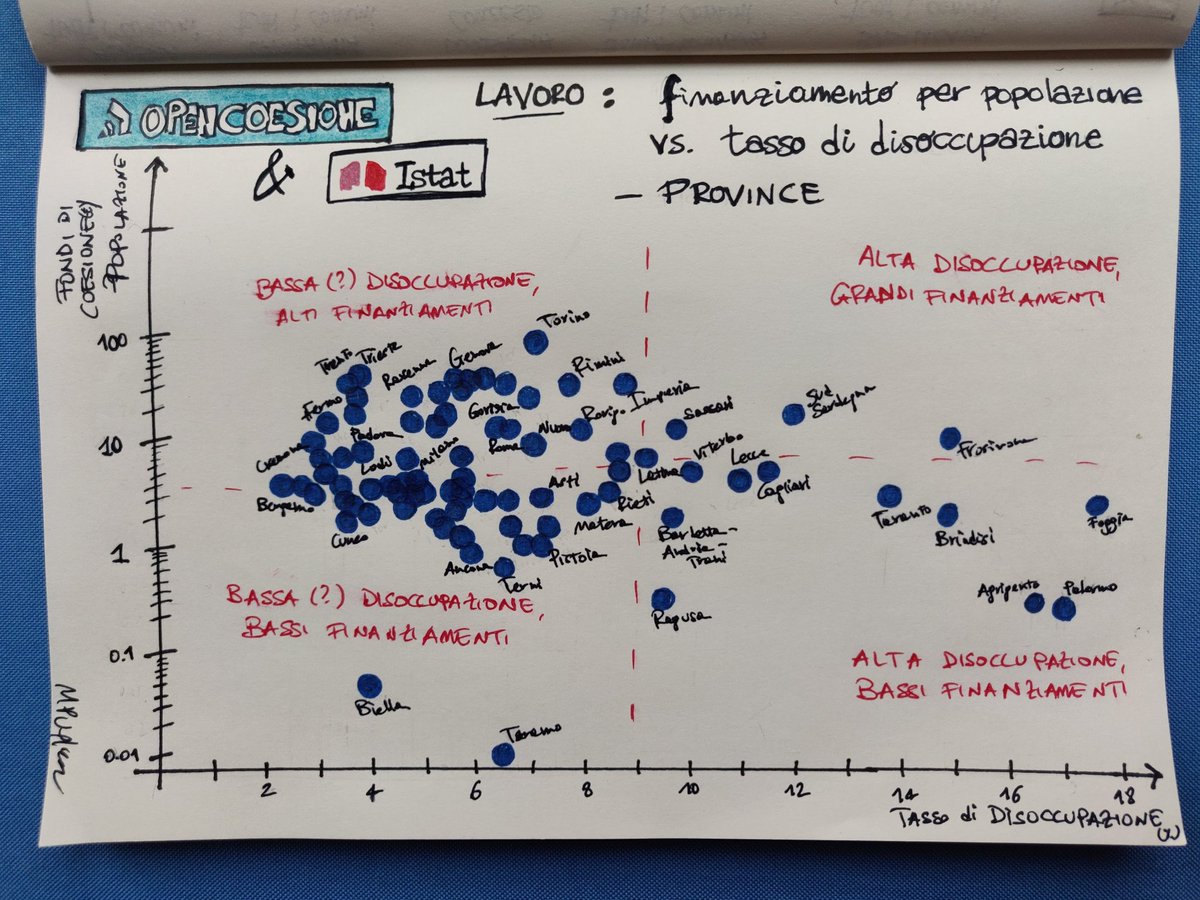 OPENCOESIONE
& Istat
LAVORO: finanziamento per popolazione
vs. tasso di disoccupazione
- PROVINCE
FONDI DI
COESIONE(€)/
POPOLAZIONE
BASSA (?) DISOCCUPAZIONE,
ALTI FINANZIAMENTI
ALTA DISOCCUPAZIONE,
GRANDI FINANZIAMENTI
100
10
1
0.1
0.01
Torino
Trento
Trieste
Ravenna
Genova
Rimini
Fermo
Gorizia
Imperia
Sassari
Sud
Sardegna
Cremona
Padova
Roma
Nuoro
Rovigo
Frosinone
Lodi
Milano
Latina
Viterbo
Lecce
Cagliari
Bergamo
Asti
Rieti
Matera
Cuneo
Barletta-
Andria-
Trani
Taranto
Brindisi
Foggia
Ancona
Pistoia
Terni
Ragusa
Agrigento
Palermo
BASSA (?) DISOCCUPAZIONE,
BASSI FINANZIAMENTI
ALTA DISOCCUPAZIONE,
BASSI FINANZIAMENTI
Biella
Teramo
2 4 6 8 10 12 14 16 18
TASSO di DISOCCUPAZIONE
(%)